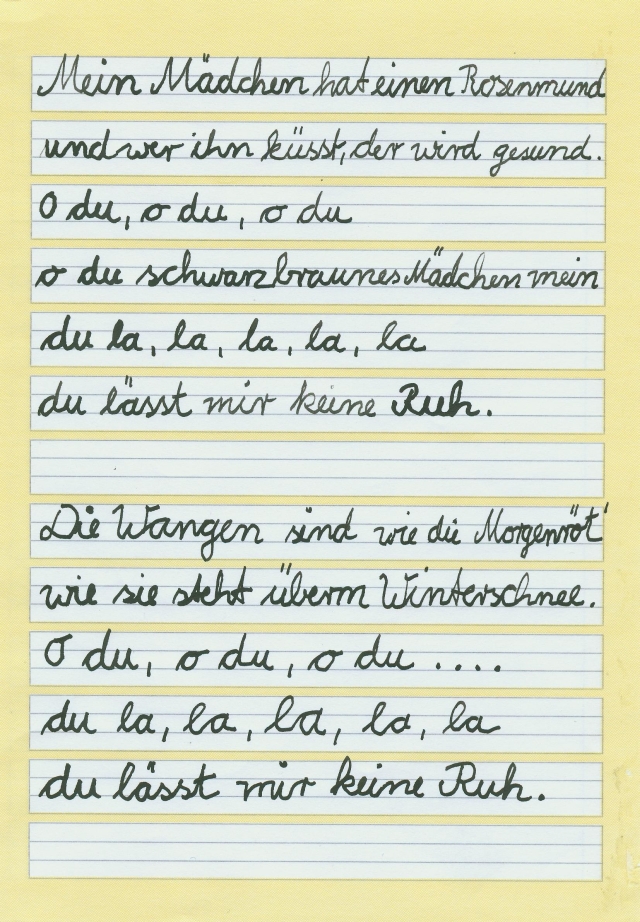 Mein Mädchen hat einen Rosenmund
und wer ihn küsst, der wird gesund.
O du, o du, o du
o du schwarzbraunes Mädchen mein
du la, la, la, la, la
du lässt mir keine Ruh.
Die Wangen sind wie die Morgenröt'
wie sie steht überm Winterschnee.
O du, o du, o du ....
du la, la, la, la, la
du lässt mir keine Ruh.